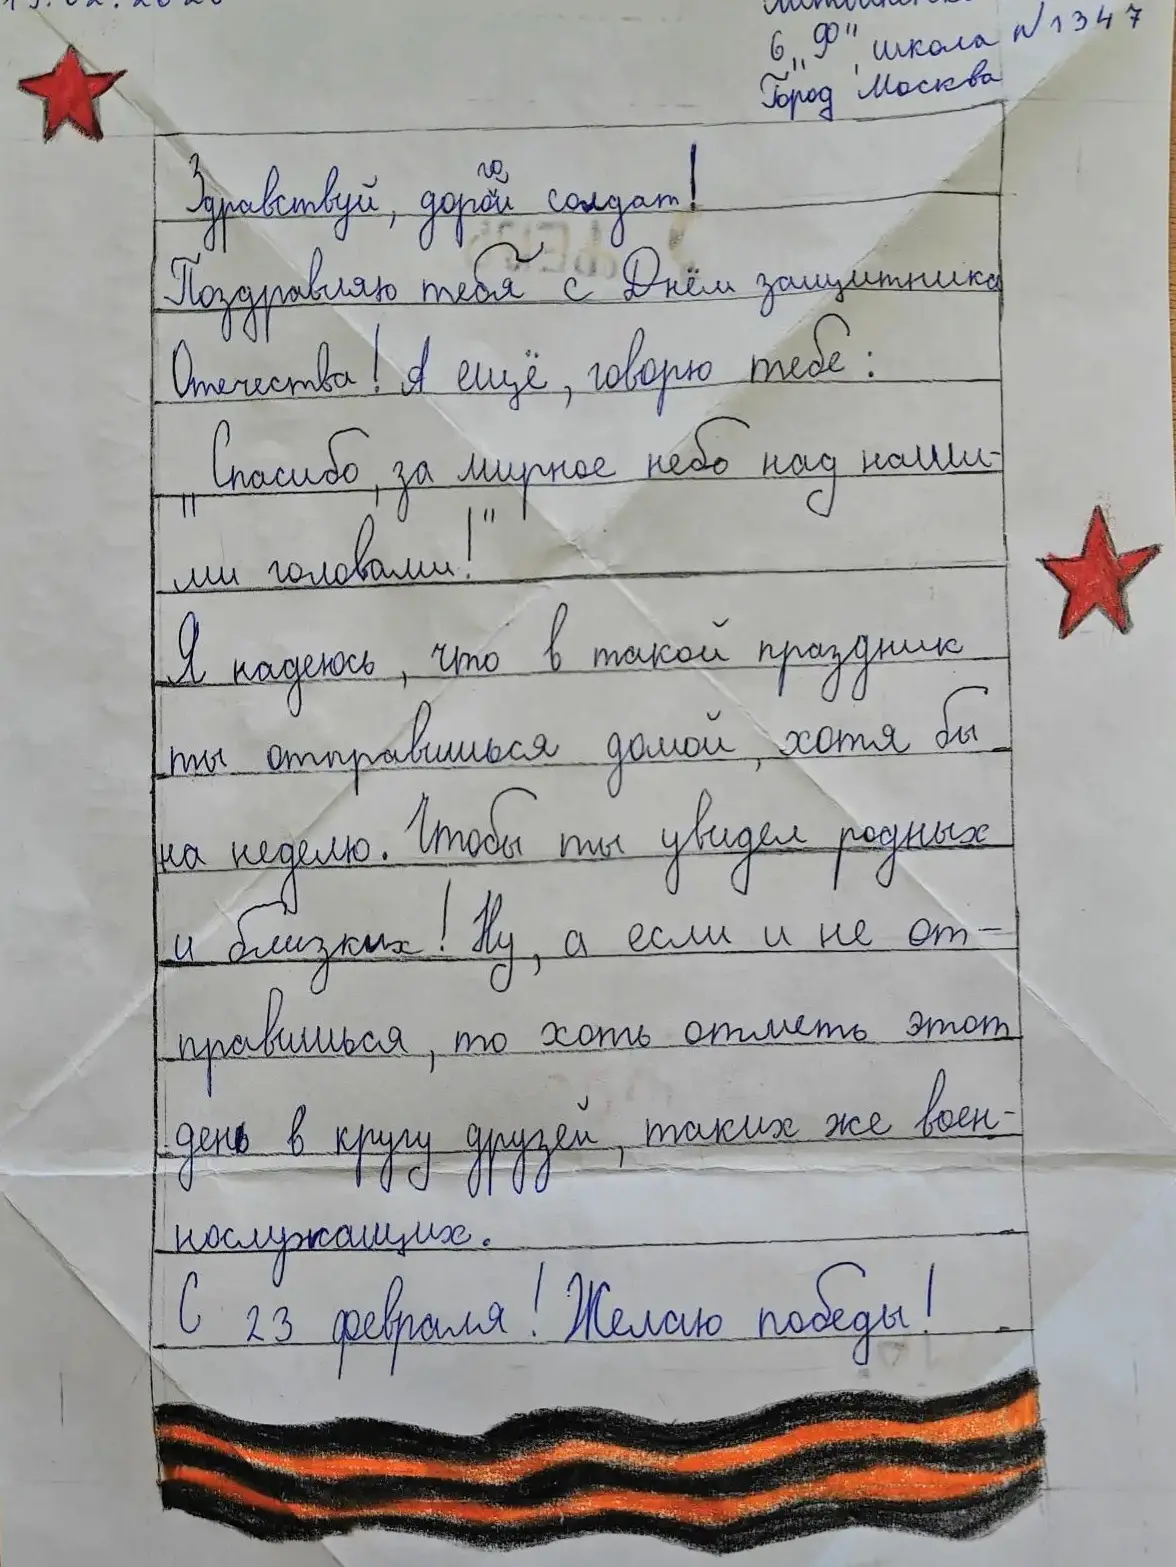 6 „Ф", школа №1347
Город Москва
Здравствуй, дорогой солдат!
Поздравляю тебя с Днём защитника
Отечества! А ещё, говорю тебе:
„Спасибо, за мирное небо над наши-
ми головами!"
Я надеюсь, что в такой праздник
ты отправишься домой, хотя бы
на неделю. Чтобы ты увидел родных
и близких! Ну, а если и не от-
правишься, то хоть отметь этот
день в кругу друзей, таких же воен-
нослужащих.
С 23 февраля! Желаю победы!